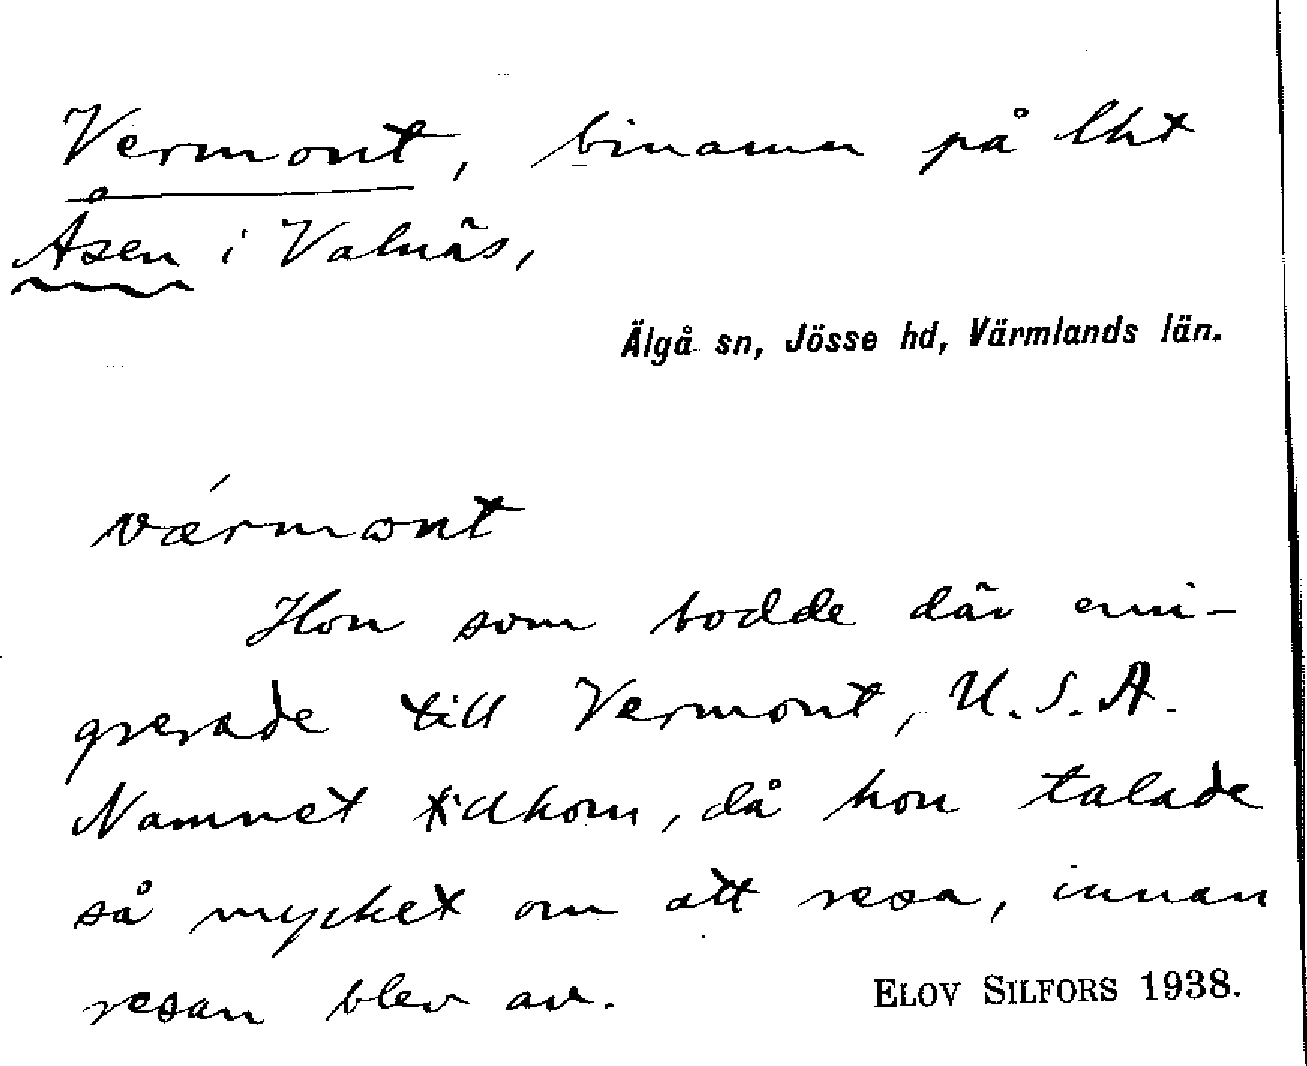 Vermont, binamn på lht
Åsen i Valnäs,
Älgå sn, Jösse hd, Värmlands län.
vǽrmɷnt
Hon som bodde där emi-
grerade till Vermont, U.S.A.
Namnet tillkom, då hon talade
så mycket om att resa, innan
resan blev av.
ELOV SILFORS 1938.